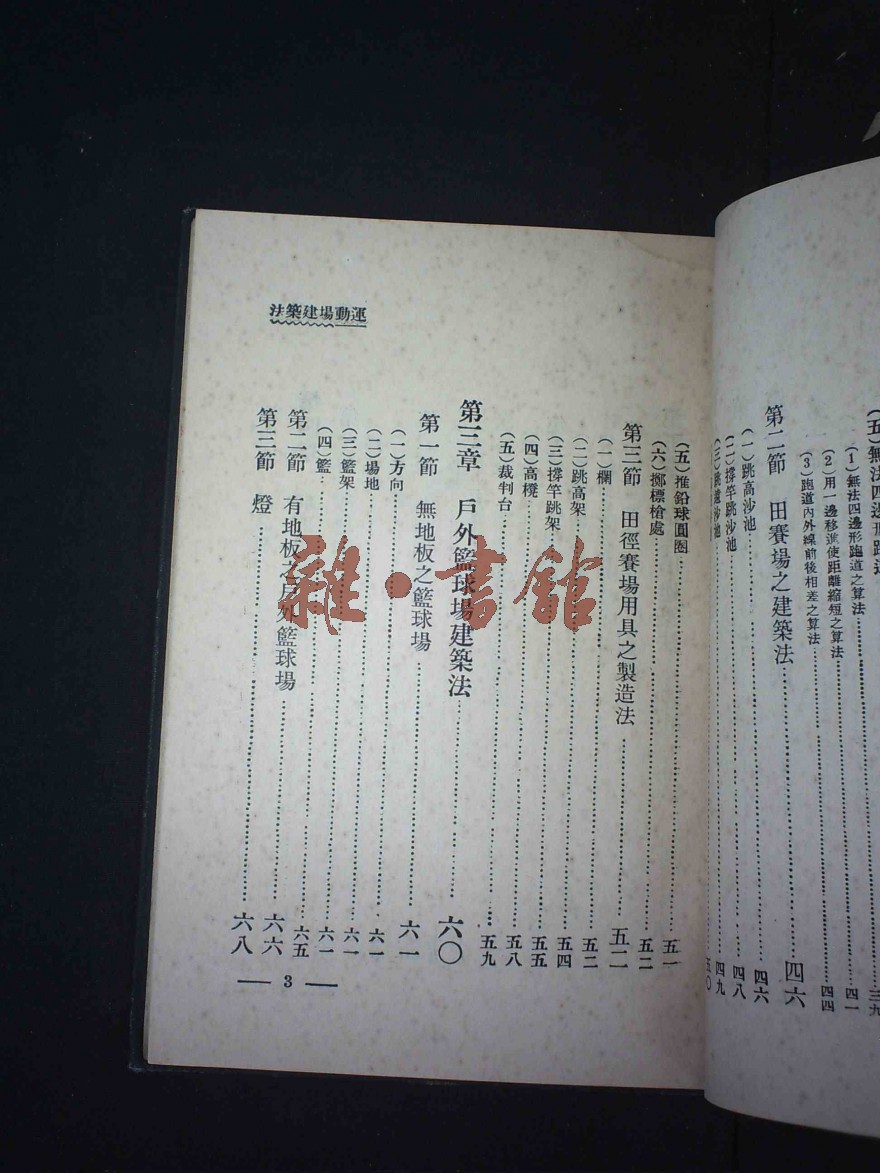 (五)無法四邊形跑道
(1)無法四邊形跑道之算法……三九
(2)用一邊移進使距離縮短之算法……四一
(3)跑道內外線前後相差之算法……四四
第二節 田賽場之建築法……四六
(一)跳高沙池……四六
(二)撐竿跳沙池……四八
(三)跳遠沙池……四九
五〇
(五)推鉛球圓圈……五一
(六)擲標槍處……五二
第三節 田徑賽場用具之製造法……五二
(一)欄……五二
(二)跳高架……五四
(三)撐竿跳架……五五
(四)高櫈……五八
(五)裁判台……五九
第三章 戶外籃球場建築法……六〇
第一節 無地板之籃球場……六一
(一)方向……六一
(二)場地……六一
(三)籃架……六一
(四)籃……六五
第二節 有地板之戶外籃球場……六六
第三節 燈……六八
運動場建築法
3
雜·書館